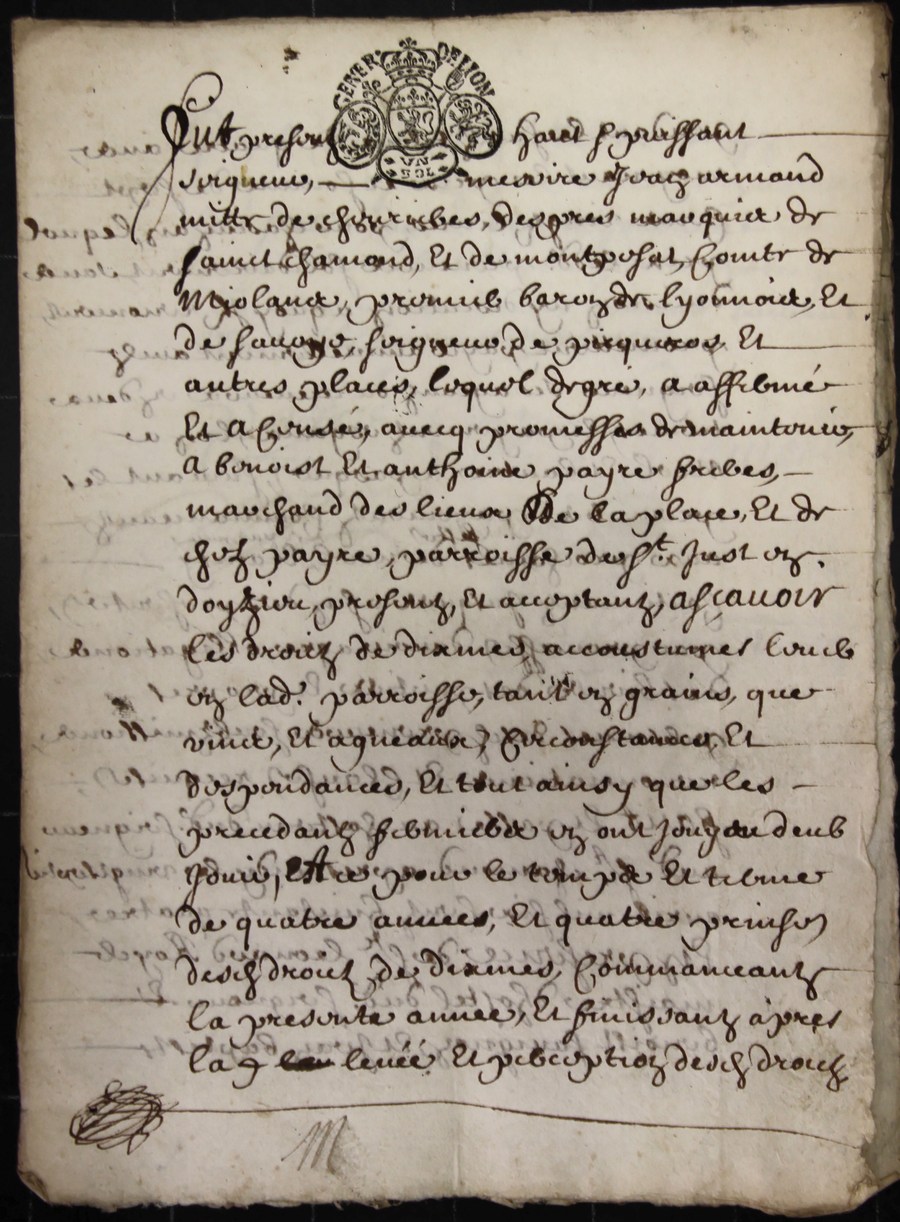 GENER. DE LYON
VN SOL
Fut present hault & puissant
seigneur, messire Jean armand
mitte de chevrieres, despres marquis de
sainct chamond, Et de montpesat, Comte de
Miolans, premier baron de lyonnois, Et
de savoye, seigneur de Et
autres places, lequel de gré, a affermé
Et acensé, avecq promesses de maintenir,
A benoist Et anthoine payre freres,
marchand des lieux de la place, Et de
chez payre, parroisse de St. Just en
doyzieu, presentz, Et acceptantz, asçavoir
les droictz de dixmes accoustumes lever
en lad. parroisse, tant en grains, que
vins, Et agneaux, Circonstances, Et
despendances, Et tout ainsy que les
precedantz fermiers en ont jouy ou deub
Jouir, Et ce pour le temps Et terme
de quatre années, Et quatre prinses
desd droictz de dixmes, Commanceantz
la presente année, Et finissantz apres
la levée Et perception desd droictz
M